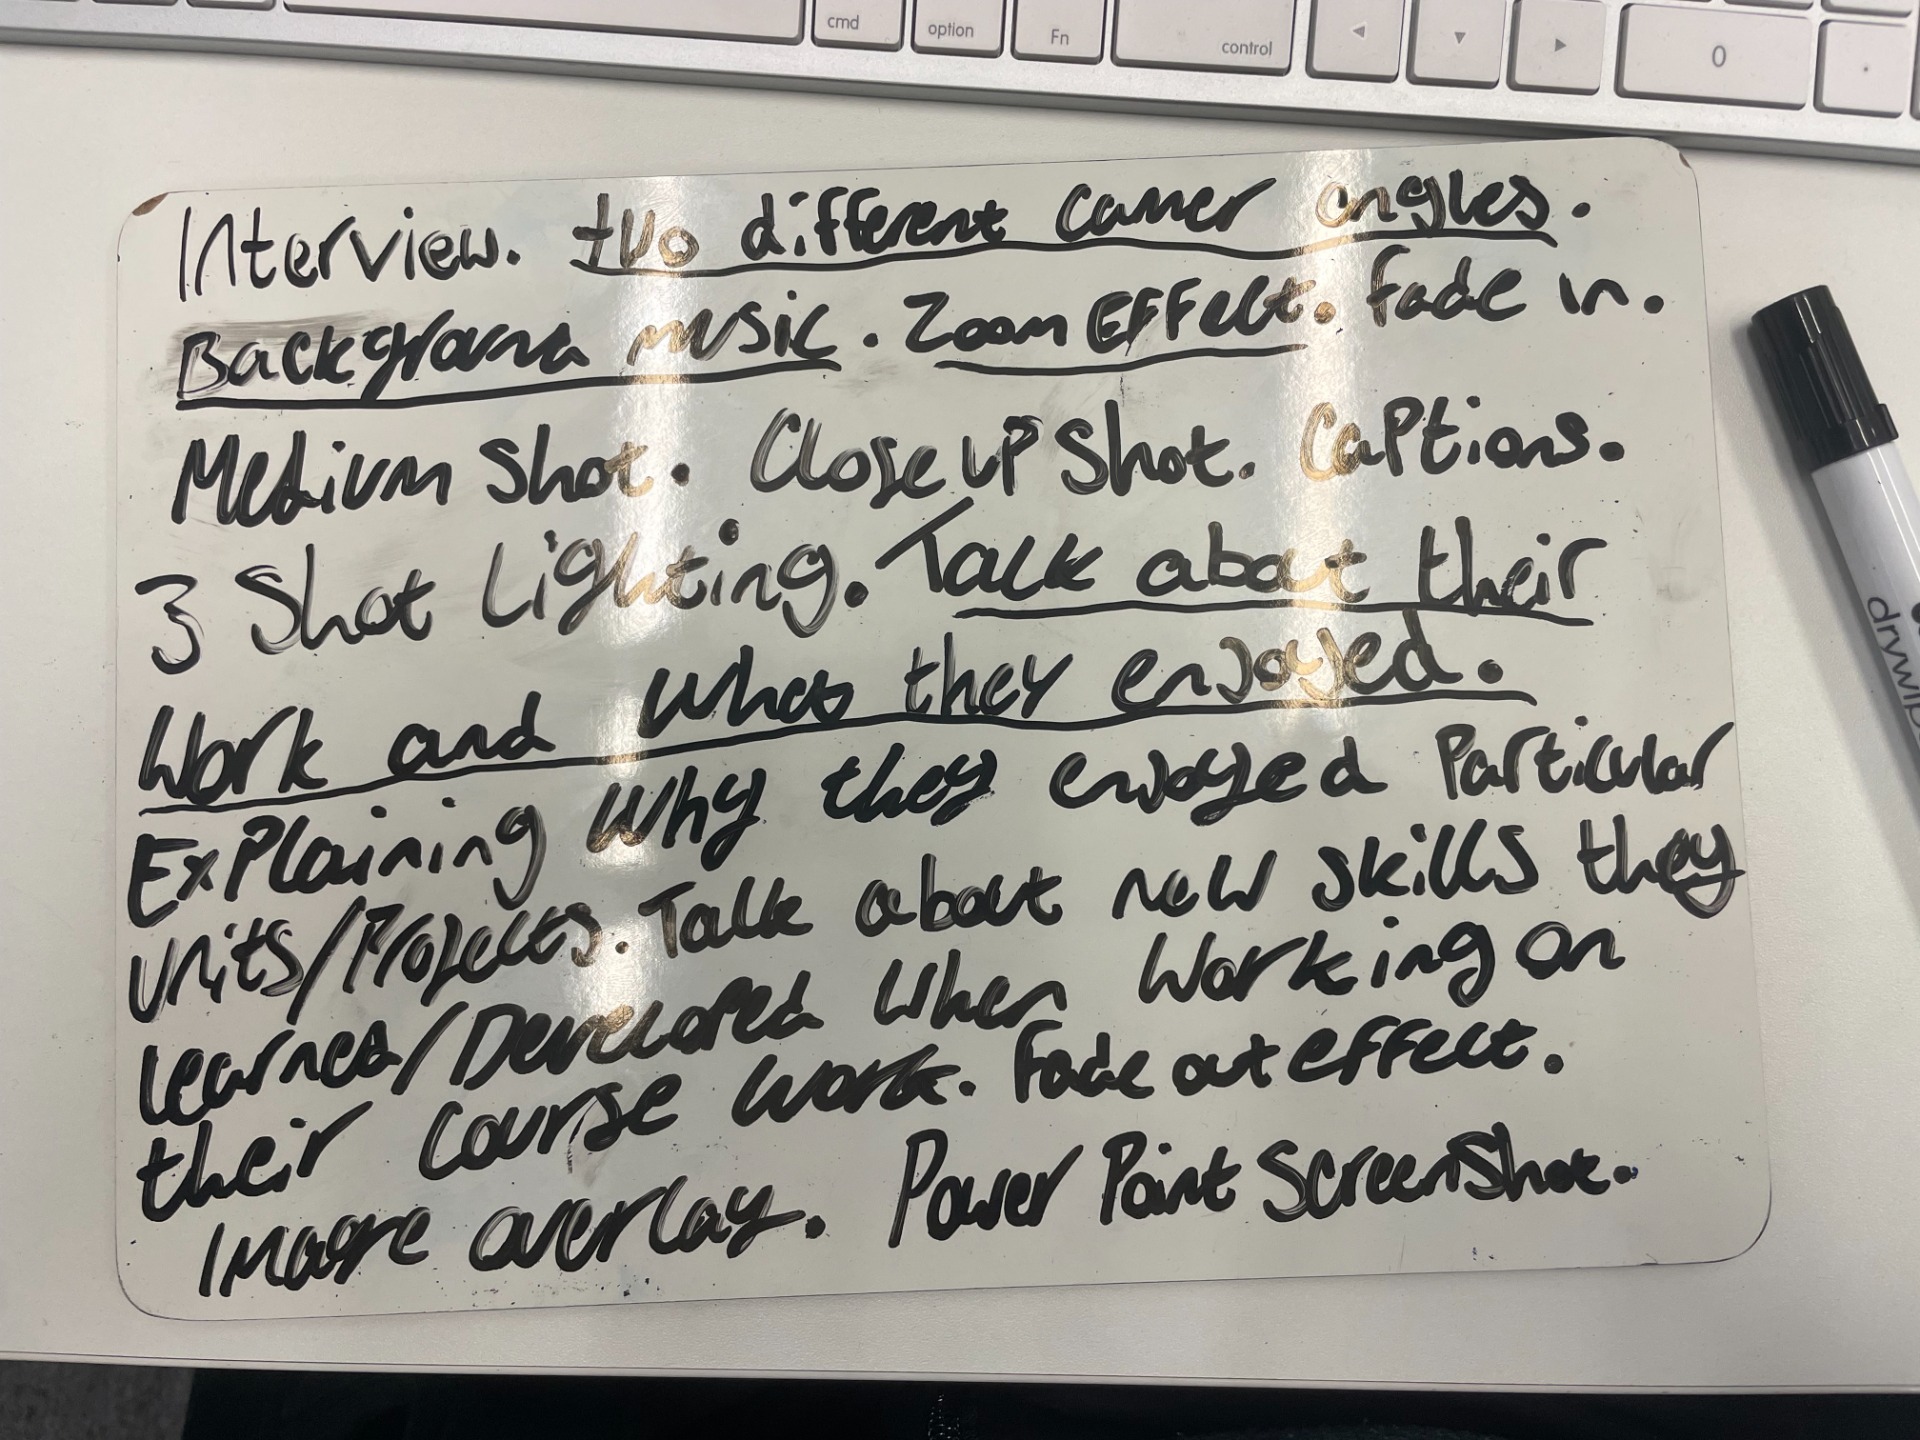 cmd option Fn control ◄ ▼ ► 0 .
Interview. two different camer angles.
Background music. Zoom Effect. fade in.
Medium Shot. Close up Shot. Captions.
3 Shot Lighting. Talk about their
Work and what they enjoyed.
Explaining why they enjoyed Particular
units/Projects. Talk about new skills they
learned/Developed when working on
their course work. Fade out effect.
Image overlay. Power Point Screenshot.